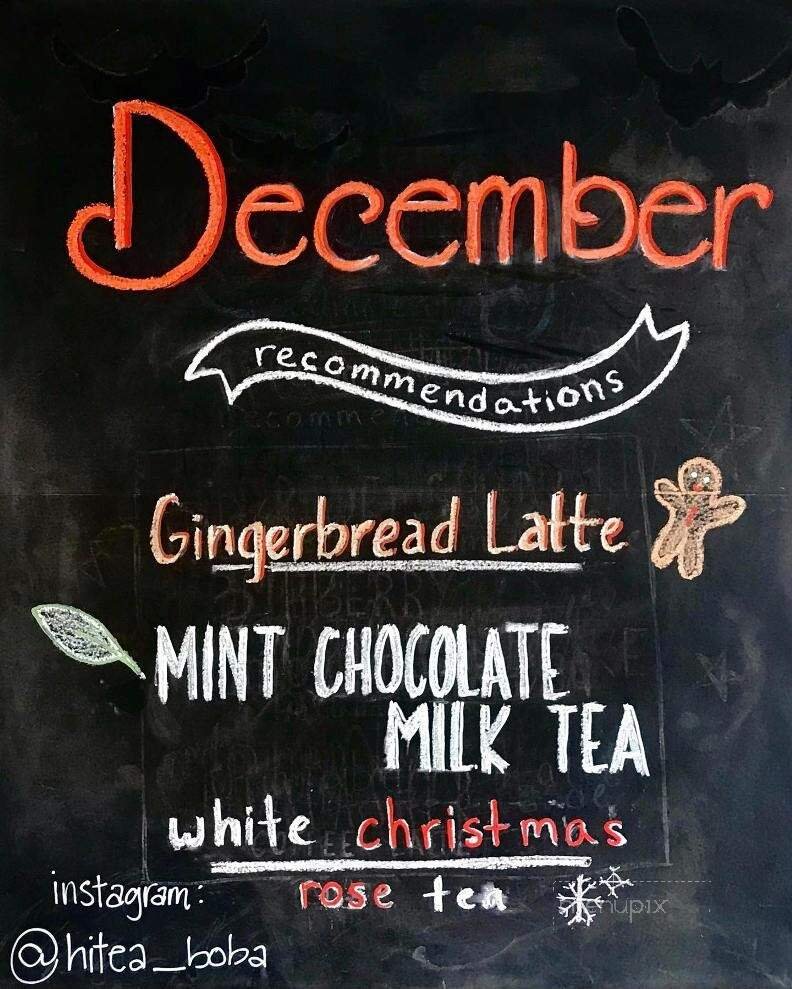 December
recommendations
Gingerbread Latte
MINT CHOCOLATE
MILK TEA
white christmas
rose tea
instagram:
@hitea_boba
menupix